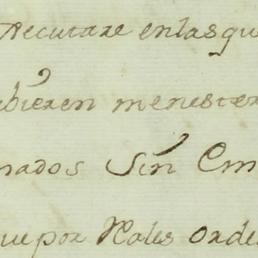 execurare enlasqu
ubieren menester
nados Sin Em
uepor Rales Orde